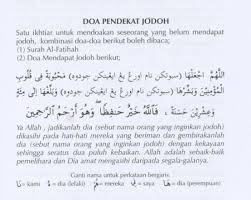 DOA PENDEKAT JODOH
Satu ikhtiar untuk mendoakan seseorang yang belum mendapat
jodoh, kombinasi doa-doa berikut boleh dibaca;
(1) Surah Al-Fatihah
(2) Doa Mendapat Jodoh berikut;
اللَّهُمَّ اجْعَلْهَا (سبوتكن نام اورڠ يڠ ايڠينكن جودوه) مَحْبُوبَةً فِي قُلُوبِ
(سبوتكن نام اورڠ يڠ ايڠينكن جودوه)
وَعِشْرِينَ حَسَنَةً ، فَاللَّهُ خَيْرٌ حَفِيظًا وَهُوَ أَرْحَمُ الرَّاحِمِينَ
Ya Allah , jadikanlah dia (sebut nama orang yang inginkan jodoh)
dikasihi pada hati orang-orang yang beriman dan gembirakanlah
dia (sebut nama orang yang inginkan jodoh) dengan kekayaan
sehingga seratus dua puluh kebaikan. Allah adalah sebaik-baik
memelihara dan Dia amat mengasihi daripada segala-galanya.
Ganti nama untuk perkataan bergaris.
نا = kami ه = dia (lelaki) هم = mereka ي = saya ها = dia (perempuan)